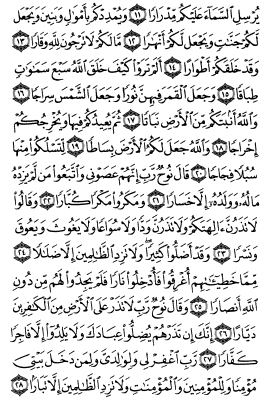 يُرْسِلِ ٱلسَّمَآءَ عَلَيْكُم مِّدْرَارًا ١١ وَيُمْدِدْكُم بِأَمْوَٰلٍ وَبَنِينَ وَيَجْعَل
لَّكُمْ جَنَّٰتٍ وَيَجْعَل لَّكُمْ أَنْهَٰرًا ١٢ مَّا لَكُمْ لَا تَرْجُونَ لِلَّهِ وَقَارًا ١٣
وَقَدْ خَلَقَكُمْ أَطْوَارًا ١٤ أَلَمْ تَرَوْا۟ كَيْفَ خَلَقَ ٱللَّهُ سَبْعَ سَمَٰوَٰتٍ
طِبَاقًا ١٥ وَجَعَلَ ٱلْقَمَرَ فِيهِنَّ نُورًا وَجَعَلَ ٱلشَّمْسَ سِرَاجًا ١٦
وَٱللَّهُ أَنۢبَتَكُم مِّنَ ٱلْأَرْضِ نَبَاتًا ١٧ ثُمَّ يُعِيدُكُمْ فِيهَا وَيُخْرِجُكُمْ
إِخْرَاجًا ١٨ وَٱللَّهُ جَعَلَ لَكُمُ ٱلْأَرْضَ بِسَاطًا ١٩ لِّتَسْلُكُوا۟ مِنْهَا
سُبُلًا فِجَاجًا ٢٠ قَالَ نُوحٌ رَّبِّ إِنَّهُمْ عَصَوْنِى وَٱتَّبَعُوا۟ مَن لَّمْ يَزِدْهُ
مَالُهُۥ وَوَلَدُهُۥٓ إِلَّا خَسَارًا ٢١ وَمَكَرُوا۟ مَكْرًا كُبَّارًا ٢٢ وَقَالُوا۟
لَا تَذَرُنَّ ءَالِهَتَكُمْ وَلَا تَذَرُنَّ وَدًّا وَلَا سُوَاعًا وَلَا يَغُوثَ وَيَعُوقَ
وَنَسْرًا ٢٣ وَقَدْ أَضَلُّوا۟ كَثِيرًا وَلَا تَزِدِ ٱلظَّٰلِمِينَ إِلَّا ضَلَٰلًا ٢٤
مِّمَّا خَطِيٓـَٰٔتِهِمْ أُغْرِقُوا۟ فَأُدْخِلُوا۟ نَارًا فَلَمْ يَجِدُوا۟ لَهُم مِّن دُونِ
ٱللَّهِ أَنصَارًا ٢٥ وَقَالَ نُوحٌ رَّبِّ لَا تَذَرْ عَلَى ٱلْأَرْضِ مِنَ ٱلْكَٰفِرِينَ
دَيَّارًا ٢٦ إِنَّكَ إِن تَذَرْهُمْ يُضِلُّوا۟ عِبَادَكَ وَلَا يَلِدُوٓا۟ إِلَّا فَاجِرًا
كَفَّارًا ٢٧ رَّبِّ ٱغْفِرْ لِى وَلِوَٰلِدَىَّ وَلِمَن دَخَلَ بَيْتِىَ
مُؤْمِنًا وَلِلْمُؤْمِنِينَ وَٱلْمُؤْمِنَٰتِ وَلَا تَزِدِ ٱلظَّٰلِمِينَ إِلَّا تَبَارًۢا ٢٨